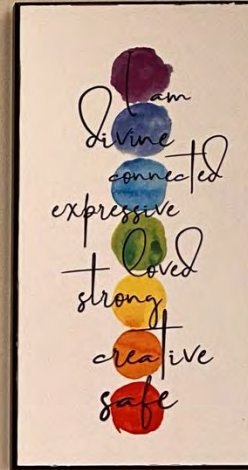 I am
divine
connected
expressive
loved
strong
creative
safe